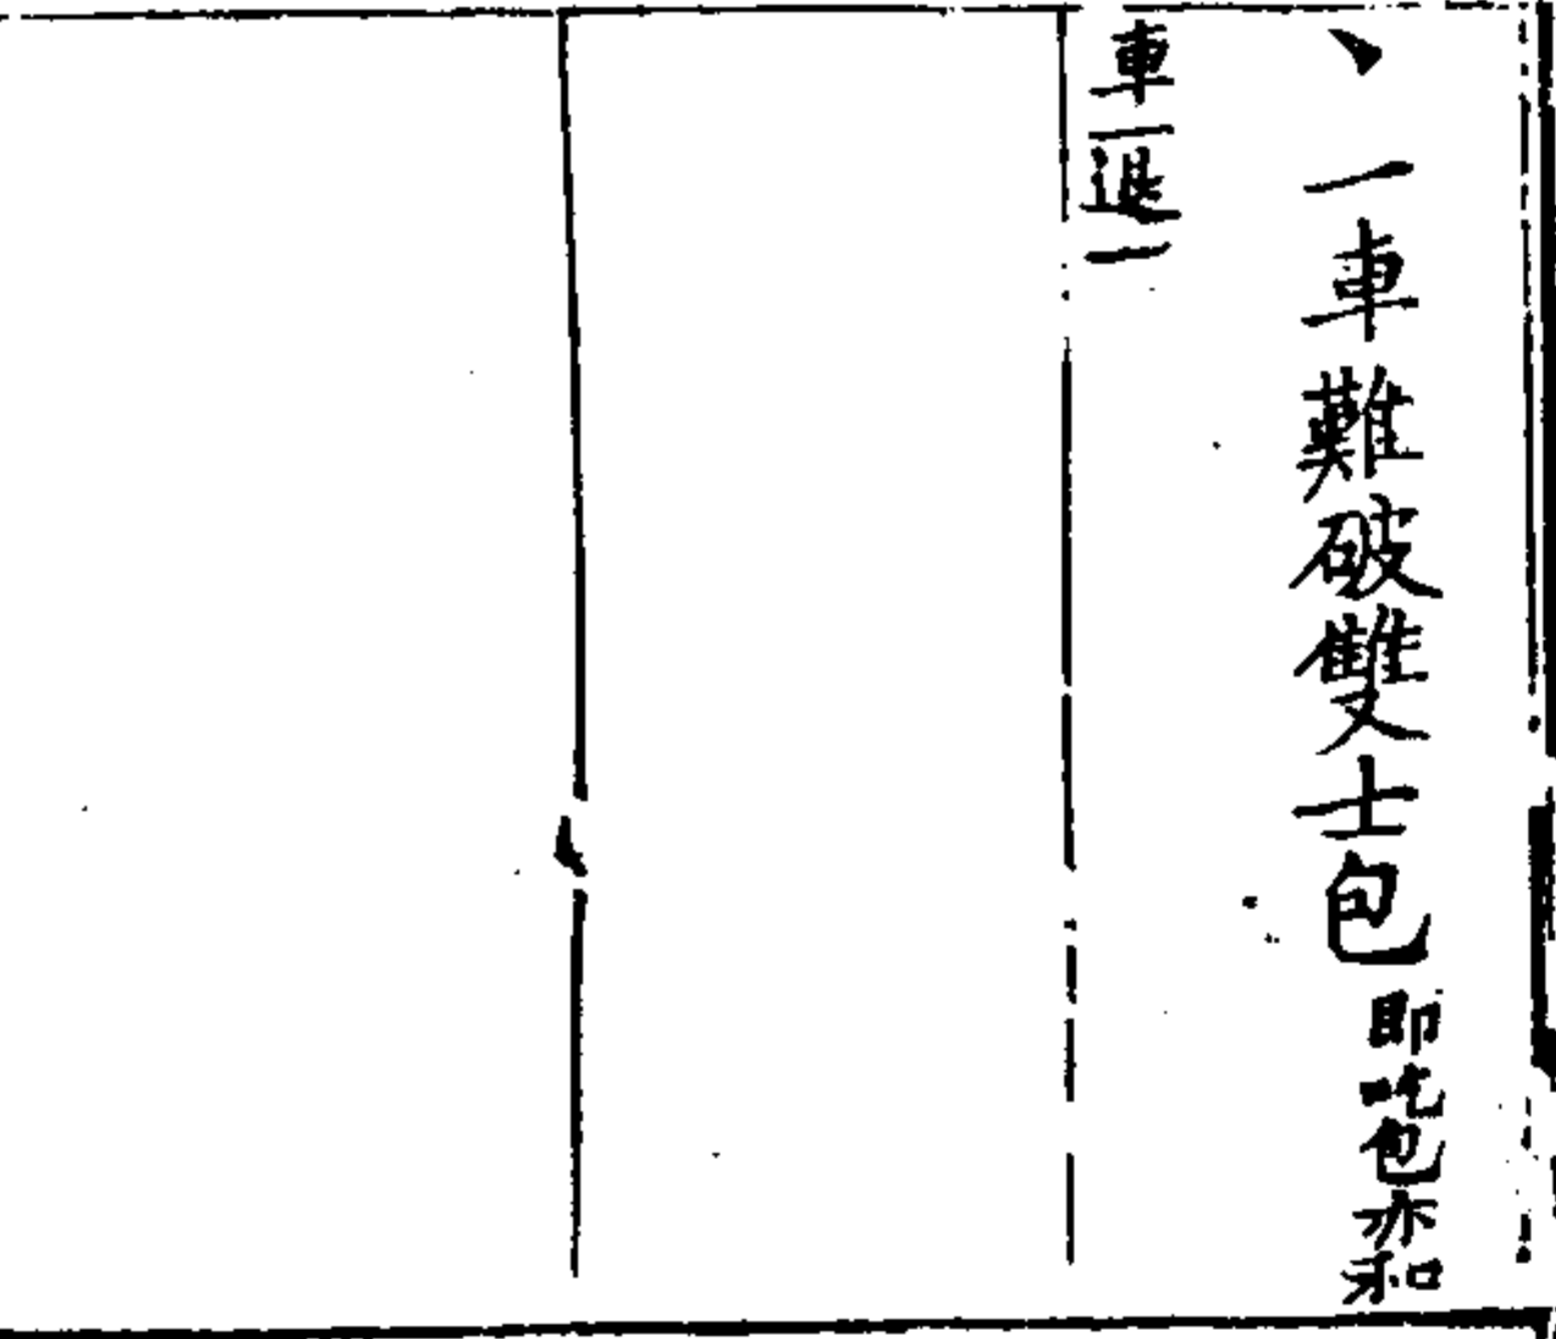 、一車難破雙士包即吃包亦和
車一退一